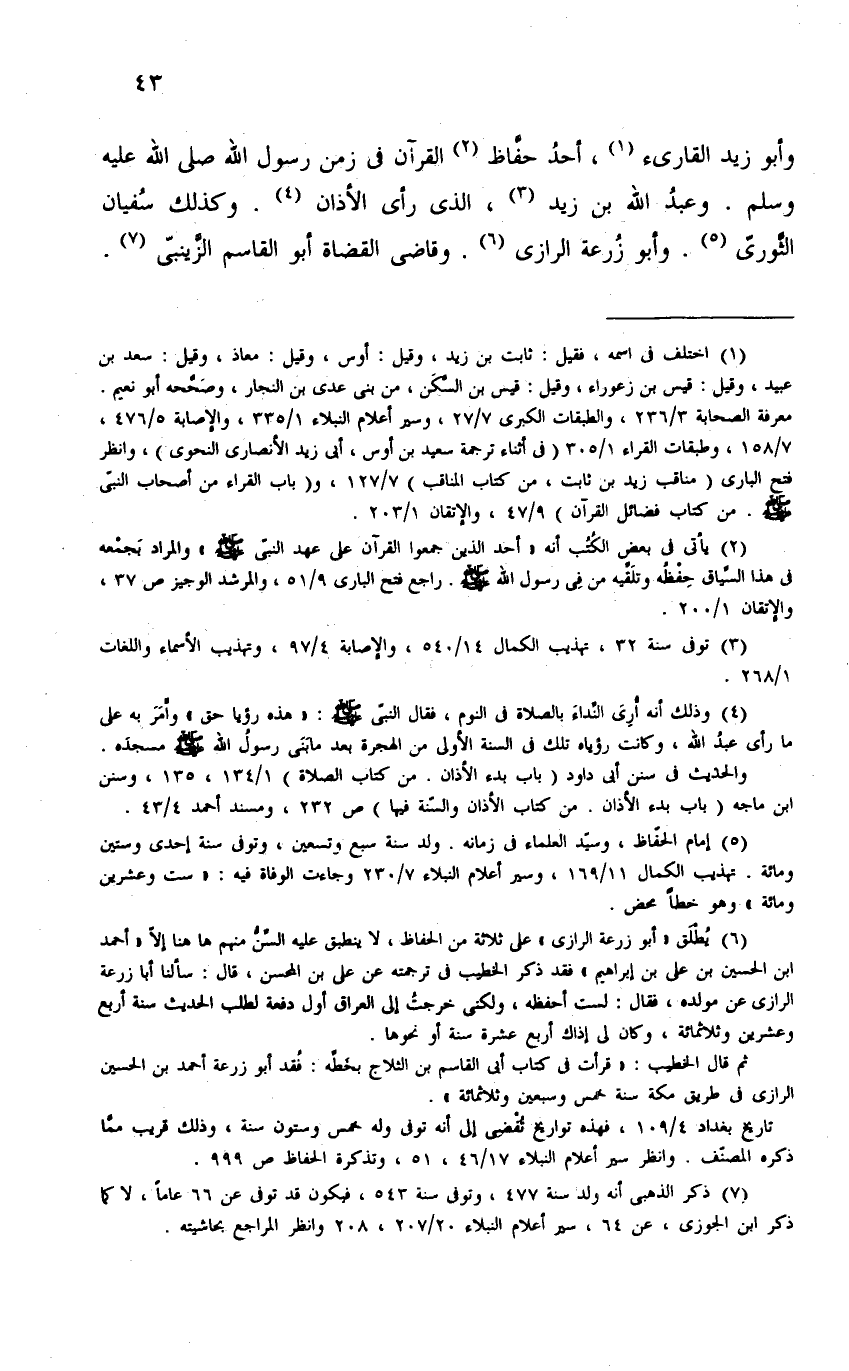 ٤٣
وأبو زيد القارىء (١) ، أحدُ حفَّاظ (٢) القرآن فى زمن رسول الله صلى الله عليه
وسلم . وعبدُ الله بن زيد (٣) ، الذى رأى الأذان (٤) . وكذلك سُفيان
الثَّورىّ (٥) . وأبو زُرعة الرازى (٦) . وقاضى القضاة أبو القاسم الزَّينبىّ (٧) .
(١) اختلف فى اسمه ، فقيل : ثابت بن زيد ، وقيل : أوس ، وقيل : معاذ ، وقيل : سعد بن
عبيد ، وقيل : قيس بن زعوراء ، وقيل : قيس بن السَّكَن ، من بنى عدى بن النجار ، وصَحَّحه أبو نعيم .
معرفة الصحابة ٢٣٦/٣ ، والطبقات الكبرى ٢٧/٧ ، وسير أعلام النبلاء ٣٣٥/١ ، والإصابة ٤٧٦/٥ ،
١٥٨/٧ ، وطبقات القراء ٣٠٥/١ ( فى أثناء ترجمة سعيد بن أوس ، أبى زيد الأنصارى النحوى ) ، وانظر
فتح البارى ( مناقب زيد بن ثابت ، من كتاب المناقب ) ١٢٧/٧ ، و( باب القراء من أصحاب النبىّ
ﷺ . من كتاب فضائل القرآن ) ٤٧/٩ ، والإتقان ٢٠٣/١ .
(٢) يأتى فى بعض الكُتُب أنه « أحد الذين جمعوا القرآن على عهد النبىّ ﷺ » والمراد بَجمْعه
فى هذا السِّياق حِفْظُه وتلَقِّيه من فِى رسول الله ﷺ . راجع فتح البارى ٥١/٩ ، والمرشد الوجيز ص ٣٧ ،
والإتقان ٢٠٠/١ .
(٣) توفى سنة ٣٢ ، تهذيب الكمال ٥٤٠/١٤ ، والإصابة ٩٧/٤ ، وتهذيب الأسماء واللغات
٢٦٨/١ .
(٤) وذلك أنه أُرِىَ النِّداءَ بالصلاة فى النوم ، فقال النبىّ ﷺ : « هذه رؤيا حق » وأمَرَ به على
ما رأى عبدُ الله ، وكانت رؤياه تلك فى السنة الأولى من الهجرة بعد مابَنَى رسولُ الله ﷺ مسجدَه .
والحديث فى سنن أبى داود ( باب بدء الأذان . من كتاب الصلاة ) ١٣٤/١ ، ١٣٥ ، وسنن
ابن ماجه ( باب بدء الأذان . من كتاب الأذان والسنّة فيها ) ص ٢٣٢ ، ومسند أحمد ٤٣/٤ .
(٥) إمام الحفّاظ ، وسيّد العلماء فى زمانه . ولد سنة سبع وتسعين ، وتوفى سنة إحدى وستين
ومائة . تهذيب الكمال ١٦٩/١١ ، وسير أعلام النبلاء ٢٣٠/٧ وجاءت الوفاة فيه : « ست وعشرين
ومائة » وهو خطأ محض .
(٦) يُطْلَق « أبو زرعة الرازى » على ثلاثة من الحفاظ ، لا ينطبق عليه السنُّ منهم ها هنا إلاّ « أحمد
ابن الحسين بن على بن إبراهيم » فقد ذكر الخطيب فى ترجمته عن على بن المحسن ، قال : سألنا أبا زرعة
الرازى عن مولده ، فقال : لست أحفظه ، ولكنى خرجتُ إلى العراق أول دفعة لطلب الحديث سنة أربع
وعشرين وثلاثمائة ، وكان لى إذاك أربع عشرة سنة أو نحوها .
ثم قال الخطيب : « قرأت فى كتاب أبى القاسم بن الثلاج بخطّه : فُقد أبو زرعة أحمد بن الحسين
الرازى فى طريق مكة سنة خمس وسبعين وثلاثمائة » .
تاريخ بغداد ١٠٩/٤ ، فهذه تواريخ تُفْضِى إلى أنه توفى وله خمس وستون سنة ، وذلك قريب ممَّا
ذكره المصنّف . وانظر سير أعلام النبلاء ٤٦/١٧ ، ٥١ ، وتذكرة الحفاظ ص ٩٩٩ .
(٧) ذكر الذهبى أنه ولد سنة ٤٧٧ ، وتوفى سنة ٥٤٣ ، فيكون قد توفى عن ٦٦ عاماً ، لا كما
ذكر ابن الجوزى ، عن ٦٤ ، سير أعلام النبلاء ٢٠٧/٢٠ ، ٢٠٨ وانظر المراجع بحاشيته .